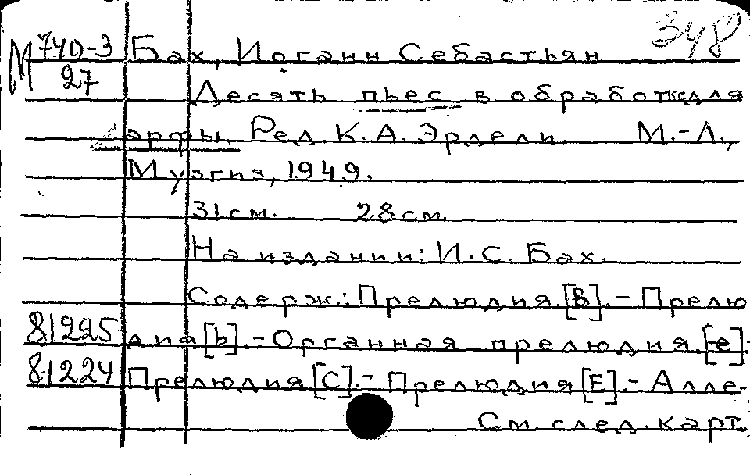 348
М 740-3 Бах, Иоганн Себастьян
27
Десять пьес в обработке для
арфы. Ред. К.А. Эрдели. М.-Л.,
Музгиз, 1949.
31 см. 28 см.
На издании: И.С. Бах.
Содерж.: Прелюдия [B]. - Прелю
81225 дия [b]. - Органная прелюдия [e].
81224 Прелюдия [C]. - Прелюдия [E]. - Алле
См. след. карт.